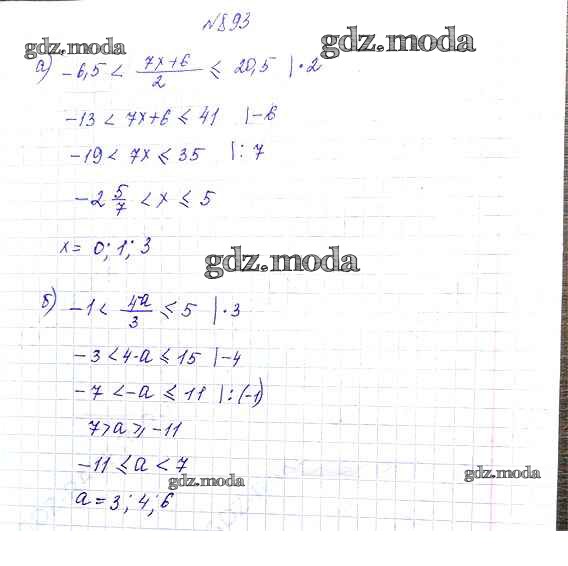 №893
gdz.moda
gdz.moda
а) -6,5 < (7x+6)/2 ≤ 20,5 |·2
-13 < 7x+6 ≤ 41 |-6
-19 < 7x ≤ 35 |: 7
-2 5/7 < x ≤ 5
x = 0; 1; 3
gdz.moda
б) -1 < 4-a/3 ≤ 5 |·3
-3 < 4-a ≤ 15 |-4
-7 < -a ≤ 11 |: (-1)
7 > a ≥ -11
-11 ≤ a < 7
gdz.moda
gdz.moda
a = 3; 4; 6